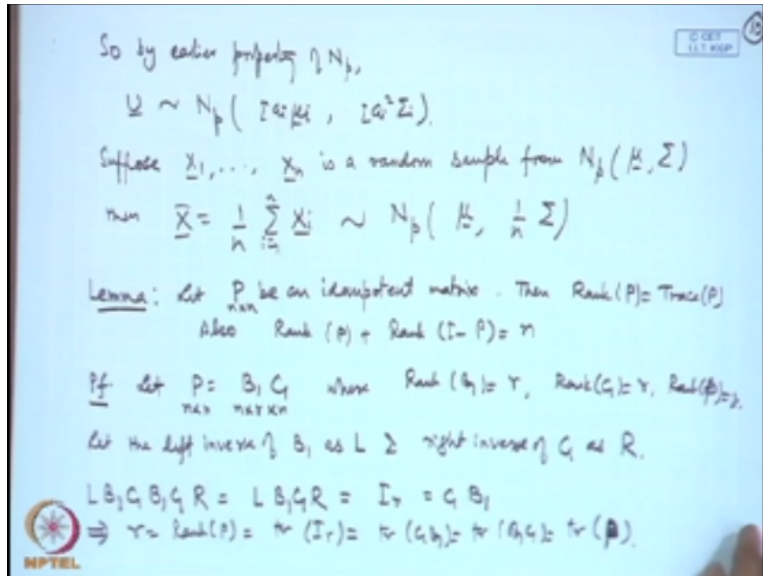 So by earlier property of N_p,
U ~ N_p ( Σ a_i μ_i , Σ a_i² Σ_i ).
Suppose X_1, ..., X_n is a random sample from N_p ( μ, Σ )
then X̄ = 1/n Σ_{i=1}^{n} X_i ~ N_p ( μ, 1/n Σ )
Lemma: Let P be an idempotent matrix. Then Rank (P) = Trace (P)
n×n
Also Rank (P) + Rank (I - P) = n
Pf. Let P = B_1 C_1 where Rank (B_1) = r, Rank (C_1) = r, Rank (P) = r.
n×n n×r r×n
Let the left inverse of B_1 as L & right inverse of C_1 as R.
L B_1 C_1 B_1 C_1 R = L B_1 C_1 R = I_r = C_1 B_1
⇒ r = Rank (P) = tr (I_r) = tr (C_1 B_1) = tr (B_1 C_1) = tr (P).
© CET
I.I.T. KGP
NPTEL